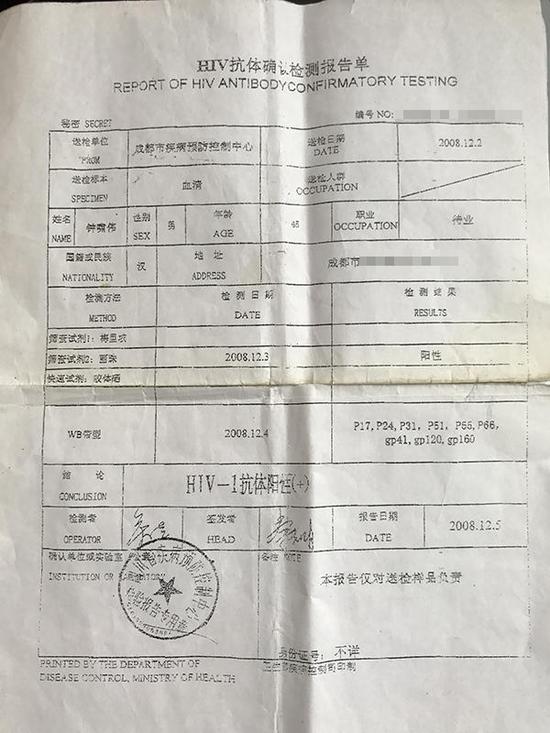 HIV抗体确认检测报告单
REPORT OF HIV ANTIBODYCONFIRMATORY TESTING
秘密 SECRET 编号 NO:
送检单位 FROM 成都市疾病预防控制中心 送检日期 DATE 2008.12.2
送检标本 SPECIMEN 血清 送检人群 OCCUPATION
姓名 NAME 性别 SEX 男 年龄 AGE 职业 OCCUPATION 待业
国籍或民族 NATIONALITY 汉 地址 ADDRESS 成都市
检测方法 METHOD 检测日期 DATE 检测结果 RESULTS
筛查试剂1: 梅里埃
筛查试剂2: 2008.12.3 阳性
快速试剂:
WB带型 2008.12.4 P17, P24, P31, P51, P55, P66,
gp41, gp120, gp160
结论 CONCLUSION HIV-1抗体阳性(+)
检测者 OPERATOR 签发者 HEAD 报告日期 DATE 2008.12.5
确认单位或实验室 备注 NOTE
INSTITUTION OR LABORATORY
本报告仅对送检样品负责
省疾病预防控制中心
检验报告专用章
身份证号: 不详
PRINTED BY THE DEPARTMENT OF
DISEASE CONTROL, MINISTRY OF HEALTH
卫生部疾病控制司印制